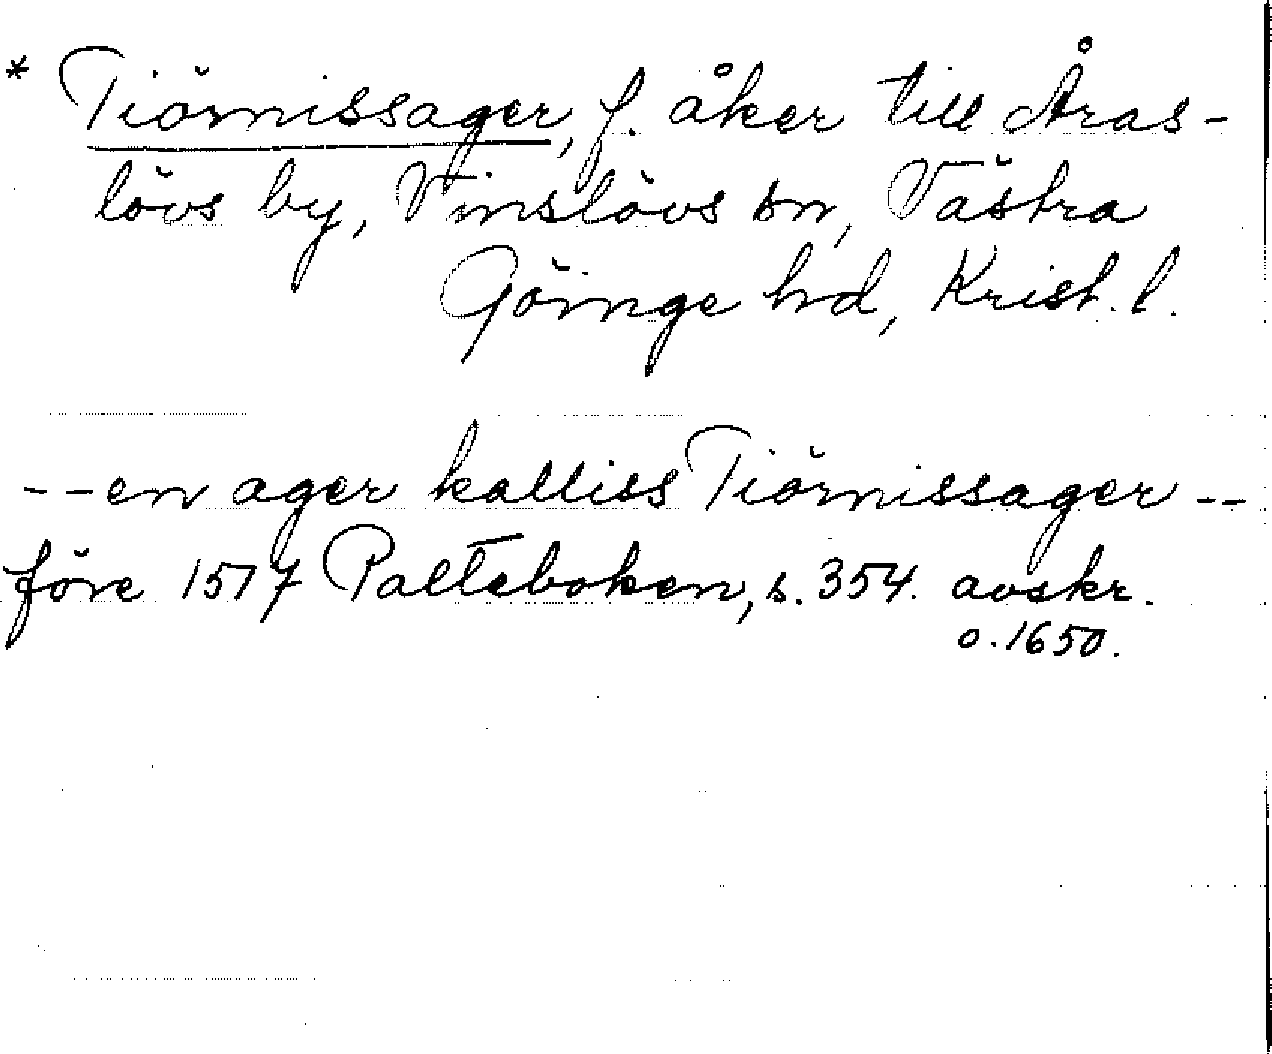 * Tiörnissager, f. åker till Åras-
lövs by, Vinslövs sn, Västra
Göinge hd, Krist. l.
-- en ager kalliss Tiörnissager --
före 1517 Palteboken, s. 354. avskr.
o. 1650.